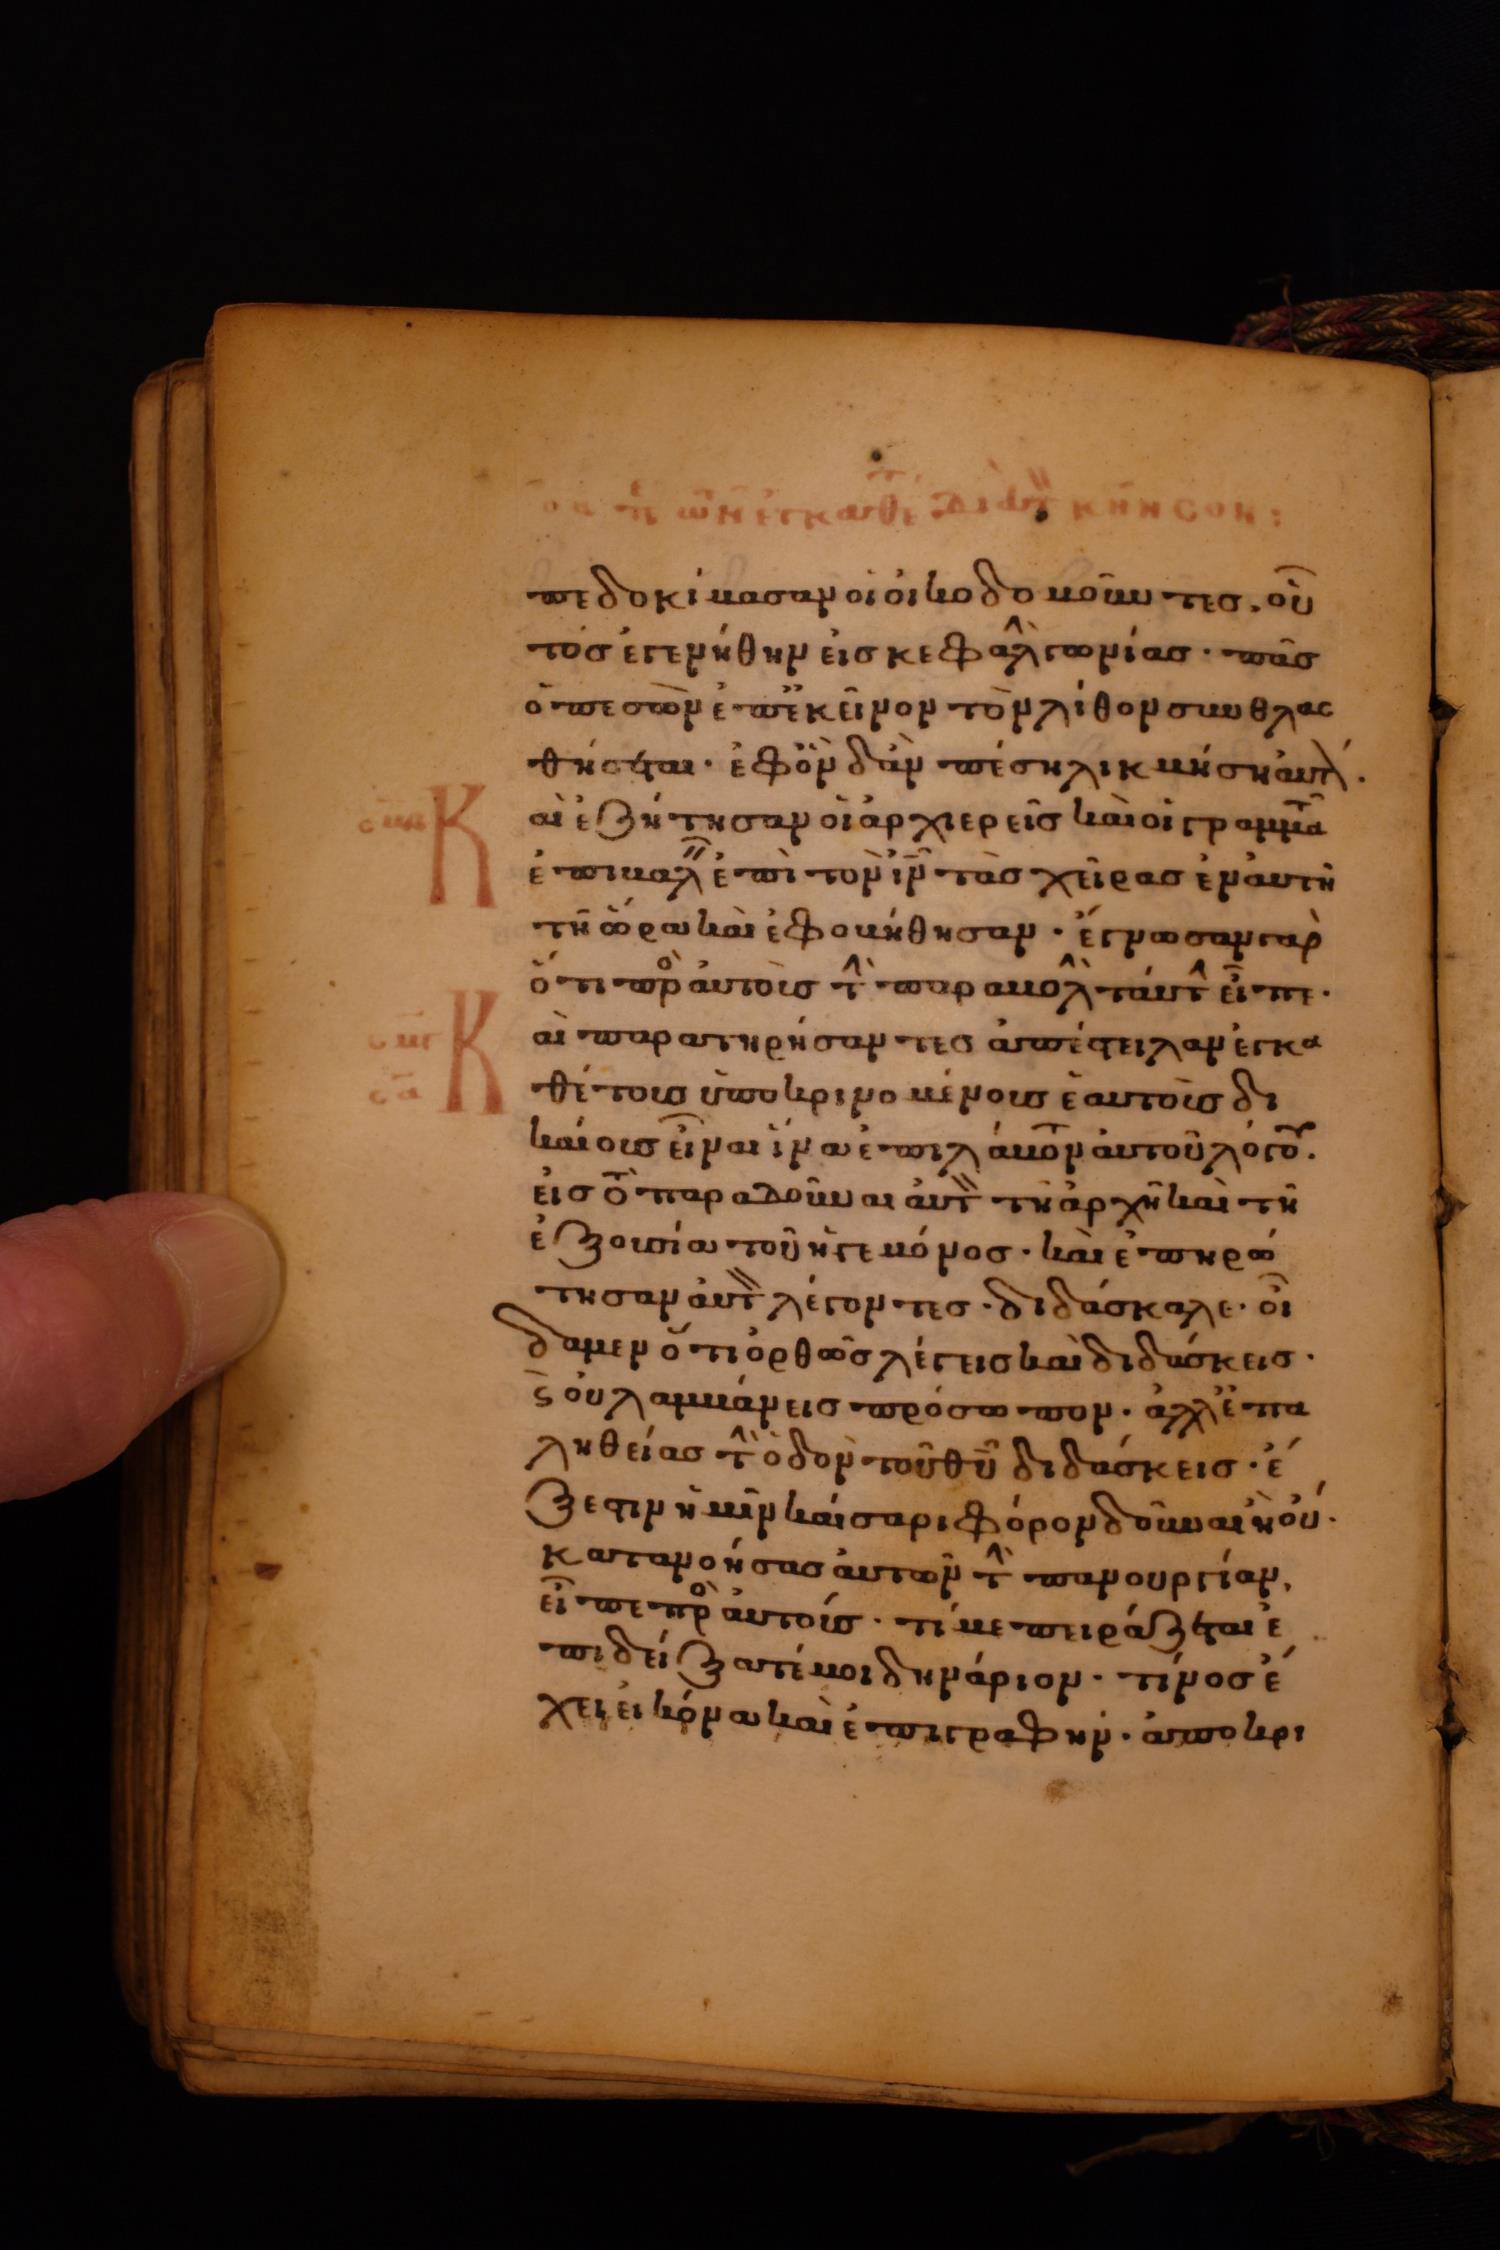 πεδοκίμασαν οἱ οἰκοδομοῦντες. οὗ
τός ἐγενήθην εἰς κεφαλ γωνίας · πᾶς
ὁ πεσὼν ἐπ ἐκεῖνον τὸν λίθον συνθλας
θήσεται · ἐφ ὃν δ ἂν πέση λικμήση αυτ.
Καὶ ἐζήτησαν οἱ ἀρχιερεῖς καὶ οἱ γραμμα
ἐπιβαλ ἐπὶ τὸν ιν τὰς χεῖρας ἐν αυτῆ
τῆ ὥρα καὶ ἐφοβήθησαν · ἔγνωσαν γὰρ
ὅτι πρ αὐτοὺς τ παραβολ ταύτ εἶπε ·
Καὶ παρατηρήσαντες ἀπέστειλαν ἐγκα
θέτους ὑποκρινομένους ἑαυτοὺς δι
καίους εἶναι ἵνα ἐπιλάβον αὐτοῦ λόγου.
εἰς τὸ παραδοῦναι αὐτ τῆ ἀρχῆ καὶ τῆ
ἐξουσία τοῦ ἡγεμόνος · καὶ ἐπηρώ
τησαν αὐτ λέγοντες · διδάσκαλε · οἴ
δαμεν ὅτι ὀρθῶς λέγεις καὶ διδάσκεις ·
ϛ οὐ λαμβάνεις πρόσωπον · ἀλλ ἐπα
ληθείας τ ὁδὸν τοῦ θυ διδάσκεις · ἔ
ξεστιν ἡμῖν καίσαρι φόρον δοῦναι ἢ οὔ ·
κατανοήσας αὐτῶν τ πανουργίαν,
εἶπε πρ αὐτούς · τί με πειράζεται ἐ
πιδείξατέ μοι δηνάριον · τίνος ἔ
χει εἰκόνα καὶ ἐπιγραφήν · ἀποκρι